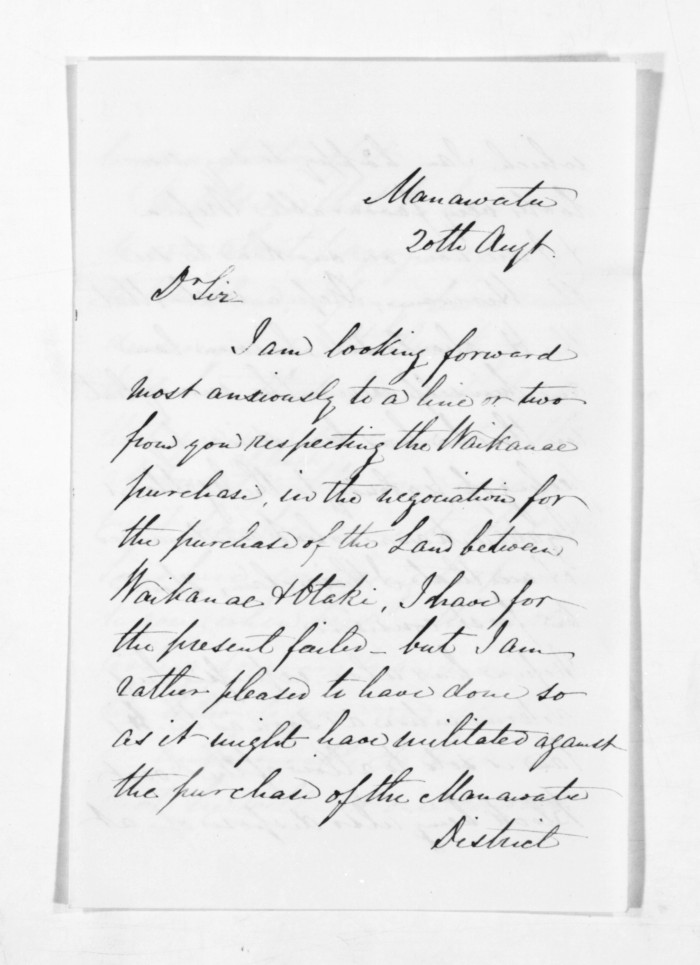 Manawatu
20th Augt.
Dr Sir
I am looking forward
most anxiously to a line or two
from you respecting the Waikanae
purchase, in the negociation for
the purchase of the Land between
Waikanae & Otaki, I have for
the present failed - but I am
rather pleased to have done so
as it might have militated against
the purchase of the Manawatu
District